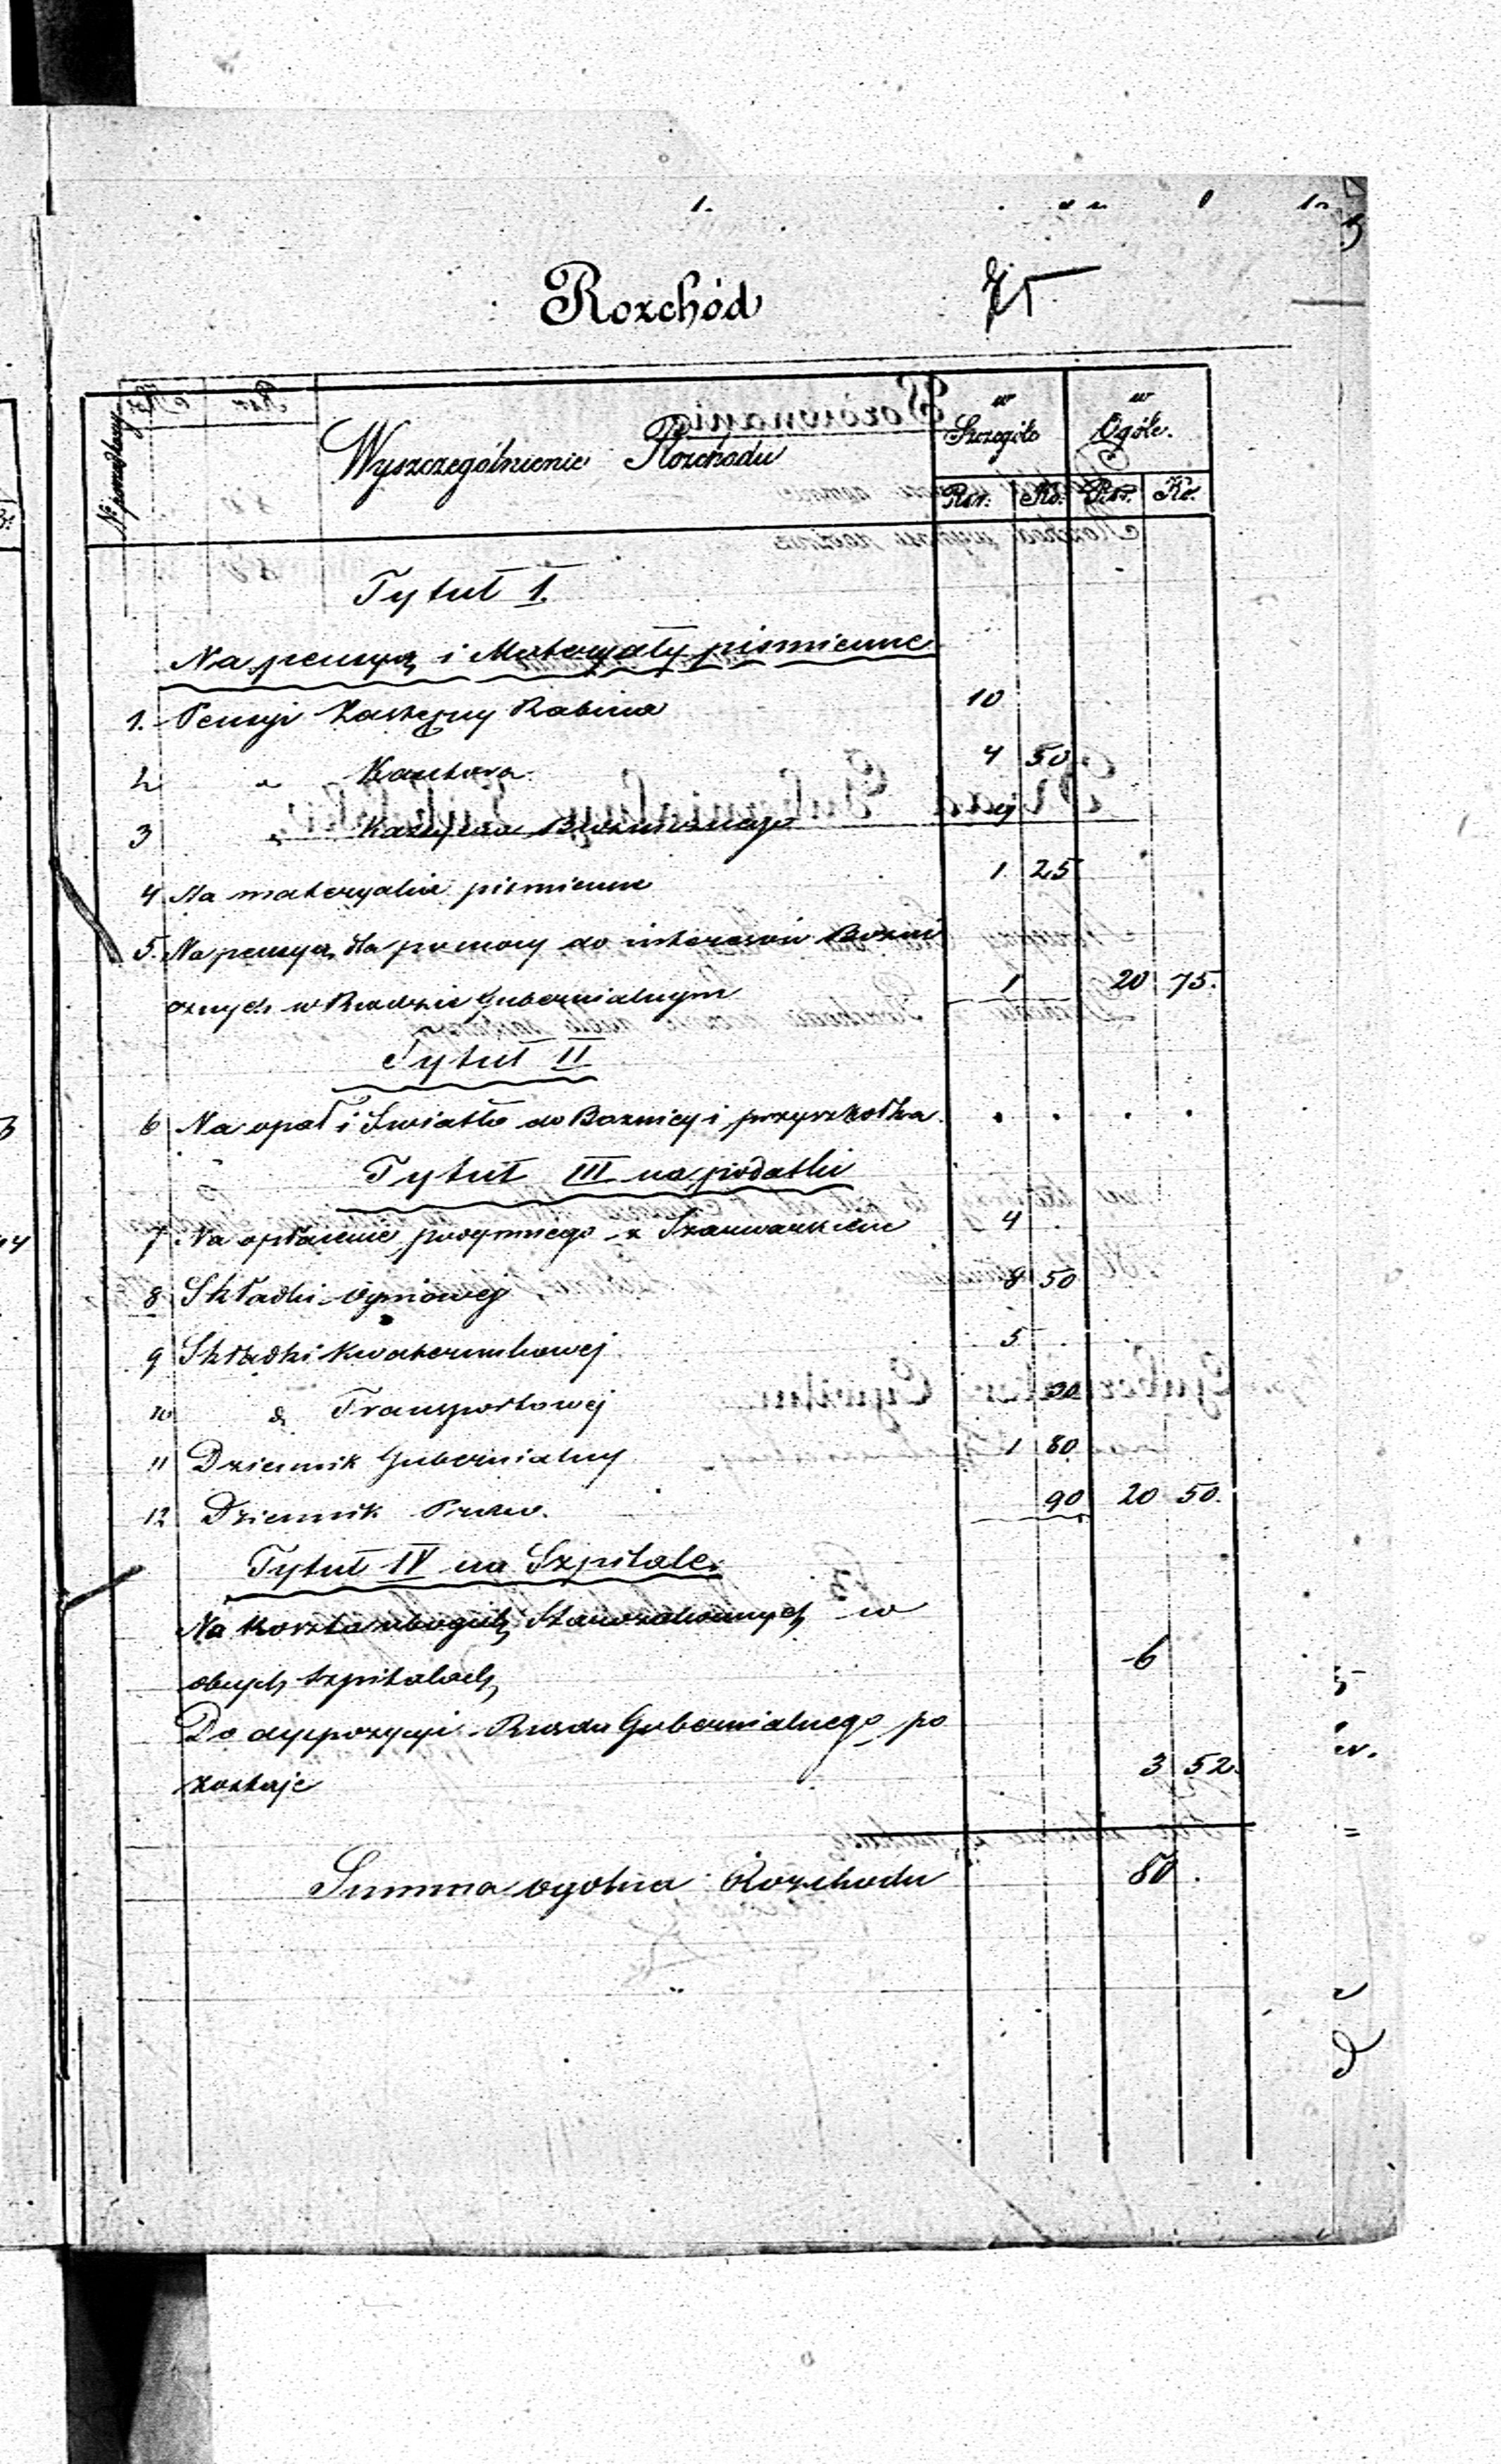 Rozchód
75
№ porządkowy
Wyszczególnienie Rozchodu
w Szczególe
w Ogóle.
Rsr. Ko. Rsr. Ko.
Tytuł I.
Na pensyą i Materyały piśmienne
1. Pensyi Zastępcy Rabina 10
2 " Kantora 4 50
3 " Kassyera Bóżnicznego 4
4 Na materyalia piśmienne 1 25
5. Na pensyą dla pomocy do interesów Bożni
cznych w Rządzie Gubernialnym 1 20 75.
Tytuł II
6 Na opał i Światło do Bożnicy i przyszkołka . . . .
Tytuł III na podatki
7 Na opłacenie podymnego z Szarwarkiem 4
8 Składki ogniowej 8 50
9 Składki Kwaterunkowej 5 .
10 d Transportowej 30
11 Dziennik Gubernialny 1 80
12 Dziennik Praw. 90 20 50.
Tytuł IV na Szpitale.
Na koszta ubogich Starozakonnych w
obcych szpitalach 6
Do dyspozycyi Rządu Gubernialnego po
zostaje 3 52.
Summa ogólna Rozchodu 80 .